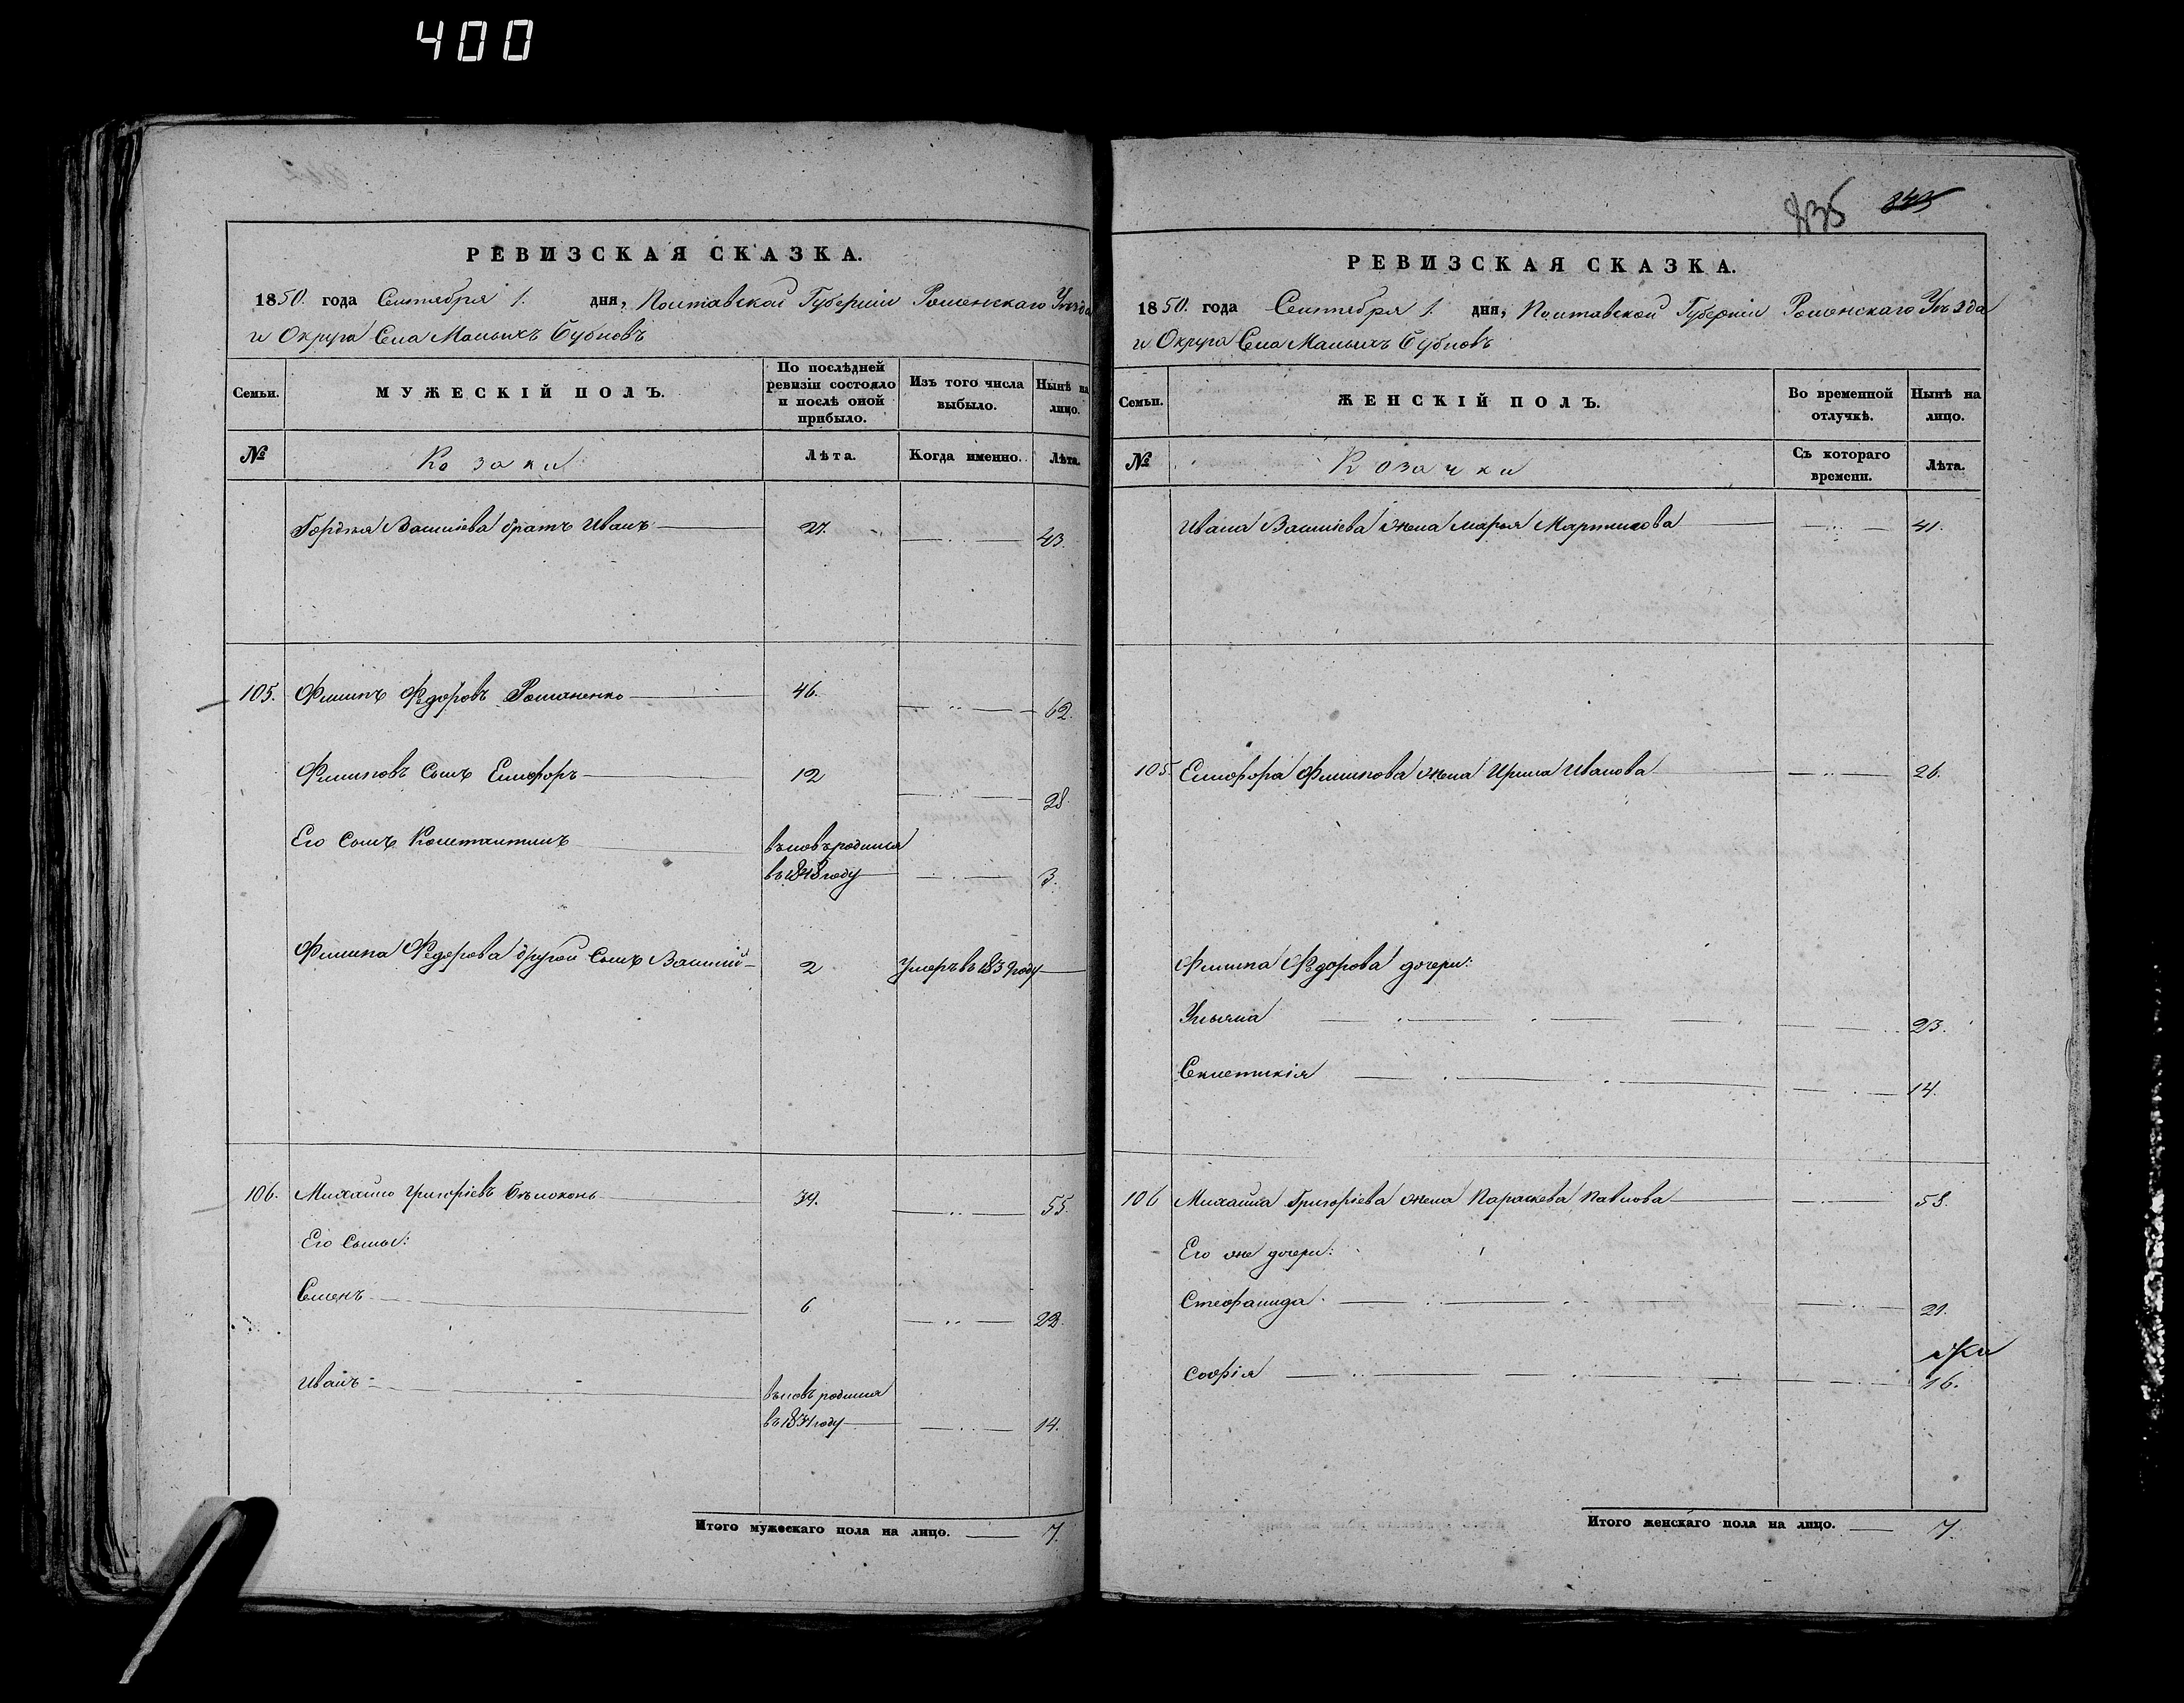 400
РЕВИЗСКАЯ СКАЗКА.
1850. года Сентября 1. дня, Полтавской Губерніи Роменскаго Уѣзда
и Округа Села Малыхъ Бубновъ
Семьи.
МУЖЕСКІЙ ПОЛЪ.
По послѣдней ревизіи состояло и послѣ оной прибыло.
Изъ того числа выбыло.
Нынѣ на лицо.
№
Козаки
Лѣта.
Когда именно.
Лѣта.
Гордѣя Василіева братъ Иванъ 27. 43.
105. Филипъ Федоровъ Романенко 46. 62.
Филиповъ Сынъ Елифоръ 12 28.
Его Сынъ Константинъ вновь родился
въ 1848 году 3.
Филипа Федорова другой Сынъ Василій 2 Умеръ въ 1839 году
106. Михайло Григоріевъ Бѣлоконь 39. 55.
Его Сыны:
Семенъ 6 22.
Иванъ вновь родился
въ 1837 году 14.
Итого мужескаго пола на лицо. 7.
235 245
РЕВИЗСКАЯ СКАЗКА.
1850. года Сентября 1. дня, Полтавской Губерніи Роменскаго Уѣзда
и Округа Села Малыхъ Бубновъ
Семьи.
ЖЕНСКІЙ ПОЛЪ.
Во временной отлучкѣ.
Нынѣ на лицо.
№
Козачки
Съ котораго времени.
Лѣта.
Ивана Василіева жена Марья Мартинова 41.
105. Елифора Филипова жена Ирина Иванова 26.
Филипа Федорова дочери:
Ульяна 23.
Секлетикія 14.
106 Михайла Григоріева жена Параскева Павлова 53.
Его же дочери:
Стефанида 21.
Софія 16.
Итого женскаго пола на лицо. 7.